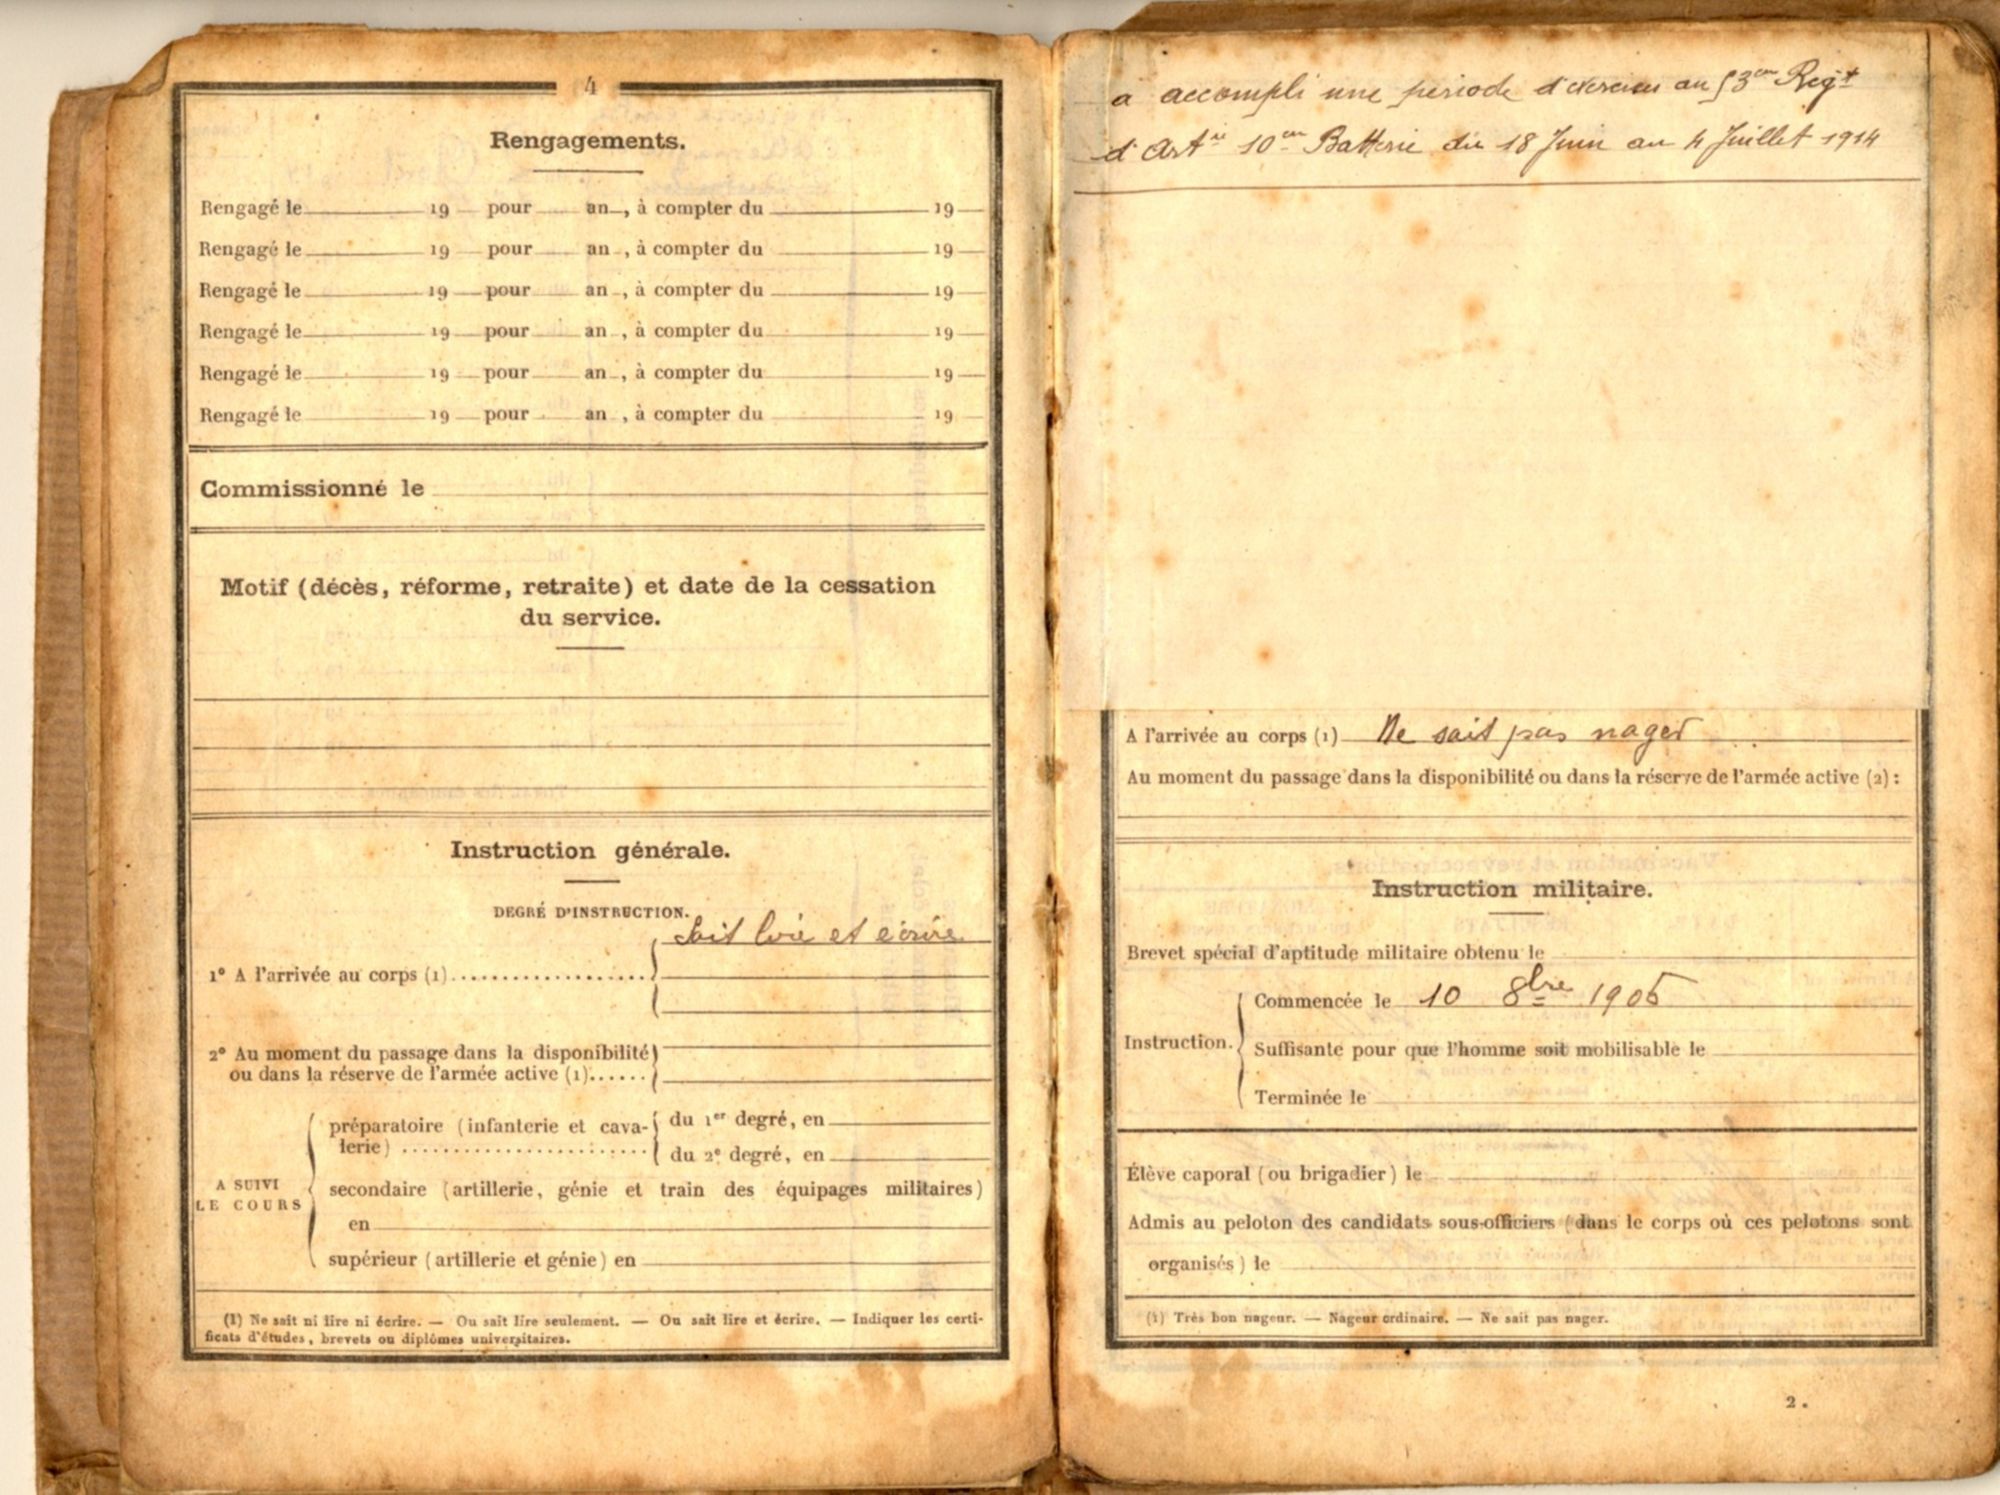 4
Rengagements.
Rengagé le 19 pour an , à compter du 19
Rengagé le 19 pour an , à compter du 19
Rengagé le 19 pour an , à compter du 19
Rengagé le 19 pour an , à compter du 19
Rengagé le 19 pour an , à compter du 19
Rengagé le 19 pour an , à compter du 19
Commissionné le
Motif (décès, réforme, retraite) et date de la cessation
du service.
Instruction générale.
DEGRÉ D'INSTRUCTION.
Sait lire et écrire
1° A l'arrivée au corps (1)
2° Au moment du passage dans la disponibilité
ou dans la réserve de l'armée active (1)
préparatoire (infanterie et cava- du 1er degré, en
lerie) du 2e degré, en
A SUIVI
LE COURS
secondaire (artillerie, génie et train des équipages militaires)
en
supérieur (artillerie et génie) en
(1) Ne sait ni lire ni écrire. — Ou sait lire seulement. — Ou sait lire et écrire. — Indiquer les certi-
ficats d'études, brevets ou diplômes universitaires.
a accompli une période d'exercices au 53em Regt
d'Artie 10em Batterie du 18 Juin au 4 Juillet 1914
A l'arrivée au corps (1) Ne sait pas nager
Au moment du passage dans la disponibilité ou dans la réserve de l'armée active (2) :
Instruction militaire.
Brevet spécial d'aptitude militaire obtenu le
Commencée le 10 8bre 1905
Instruction. Suffisante pour que l'homme soit mobilisable le
Terminée le
Élève caporal (ou brigadier) le
Admis au peloton des candidats sous-officiers (dans le corps où ces pelotons sont
organisés) le
(1) Très bon nageur. — Nageur ordinaire. — Ne sait pas nager.
2.